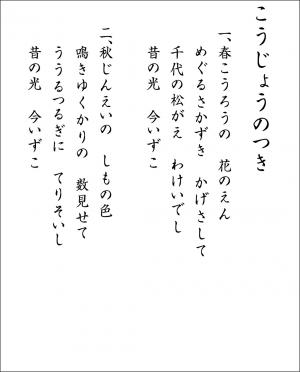 こうじょうのつき
一、春こうろうの 花のえん
めぐるさかずき かげさして
千代の松がえ わけいでし
昔の光 今いずこ
二、秋じんえいの しもの色
鳴きゆくかりの 数見せて
ううるつるぎに てりそいし
昔の光 今いずこ